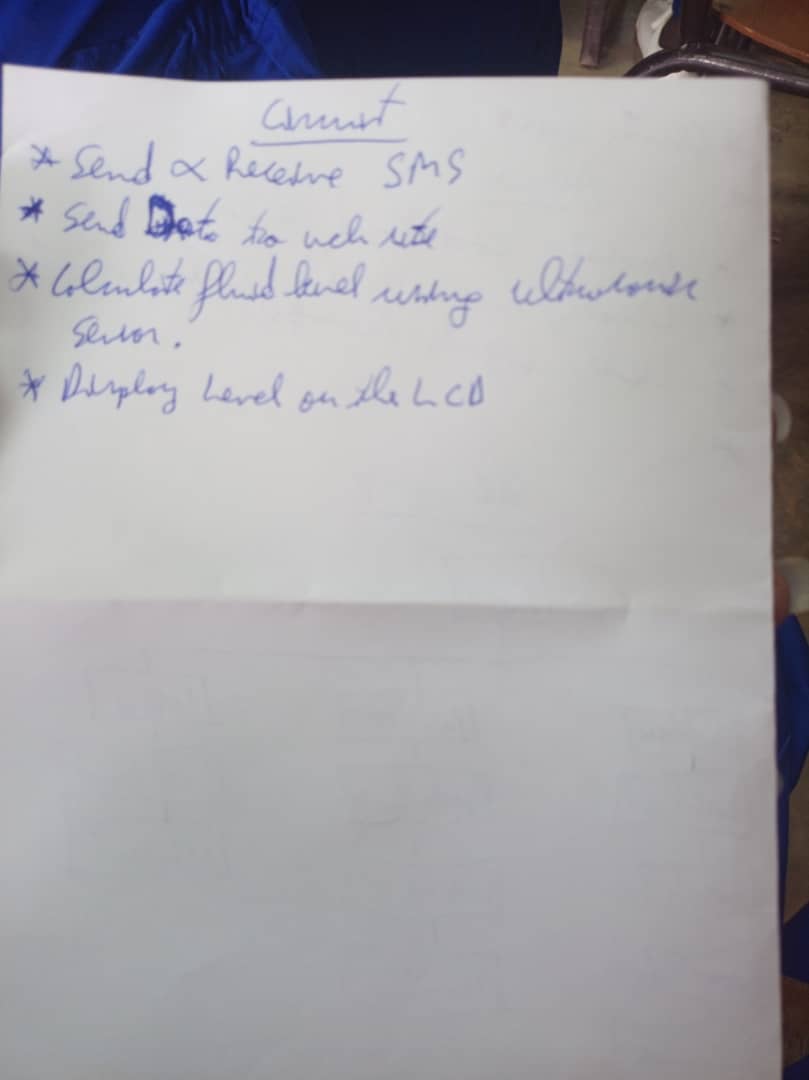 * Send & Receive SMS
* Send Data to web site
* Calculate fluid level using ultrasonic
Sensor.
* Display Level on the LCD